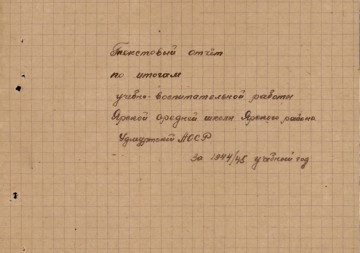 Текстовый отчёт
по итогам
учебно-воспитательной работы
Ярской средней школы Ярского района
Удмуртской АССР
за 1944/45 учебный год